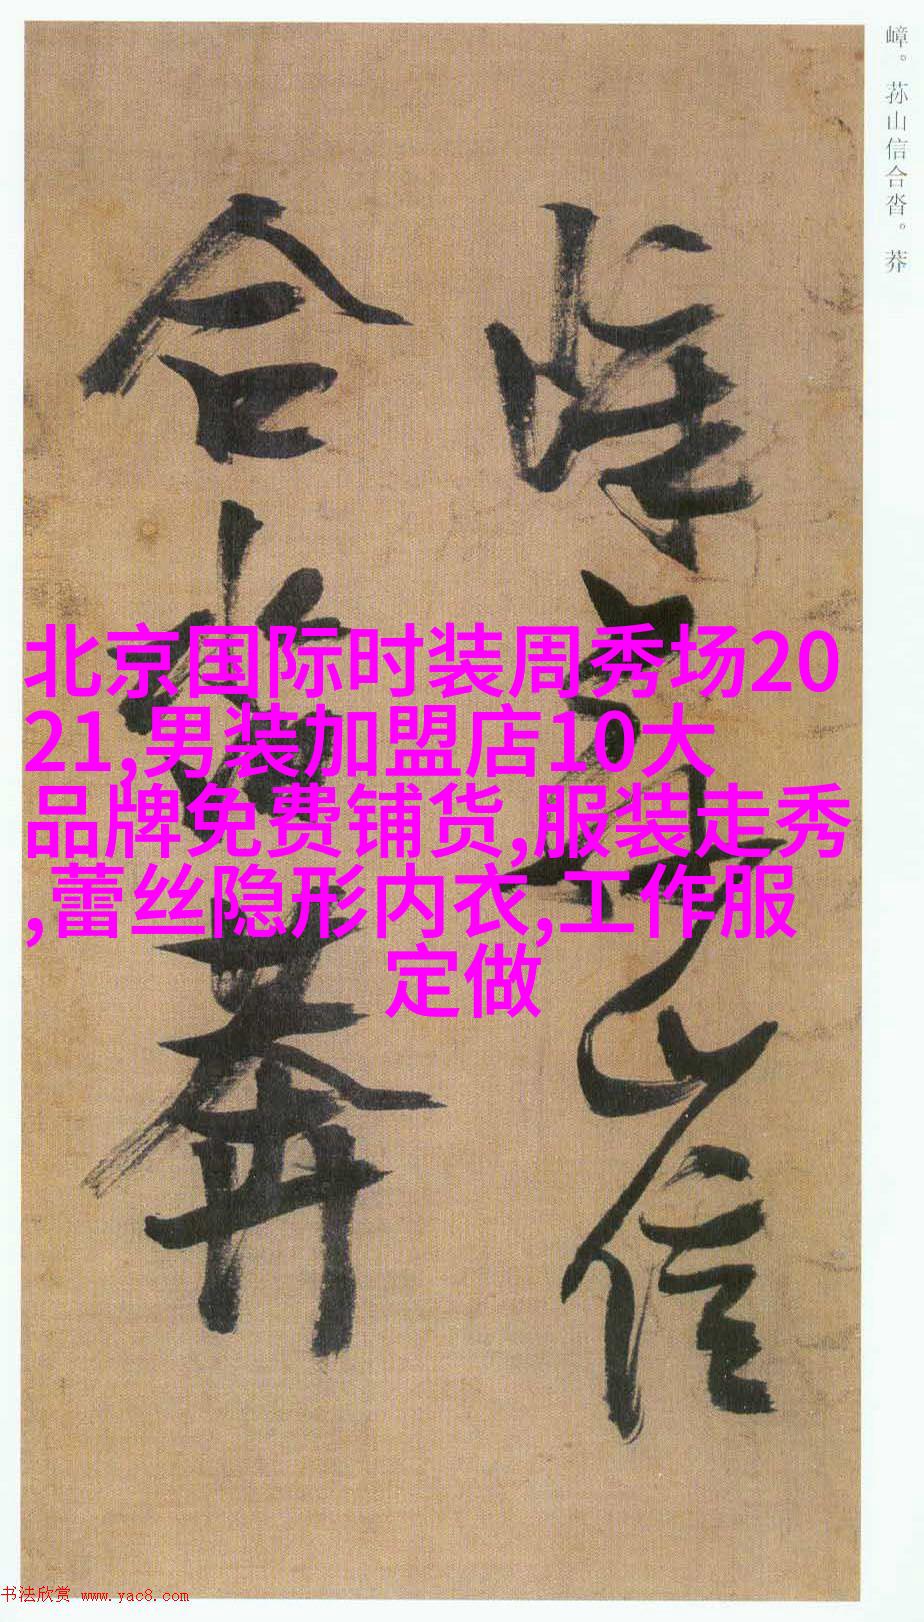 嶂。荪山信合沓。莽
嶂荪山信
合沓莽
北京国际时装周秀场20
21,男装加盟店10大
品牌免费铺货,服装走秀
,蕾丝隐形内衣,工作服
定做
书法欣赏 www.yac8.com